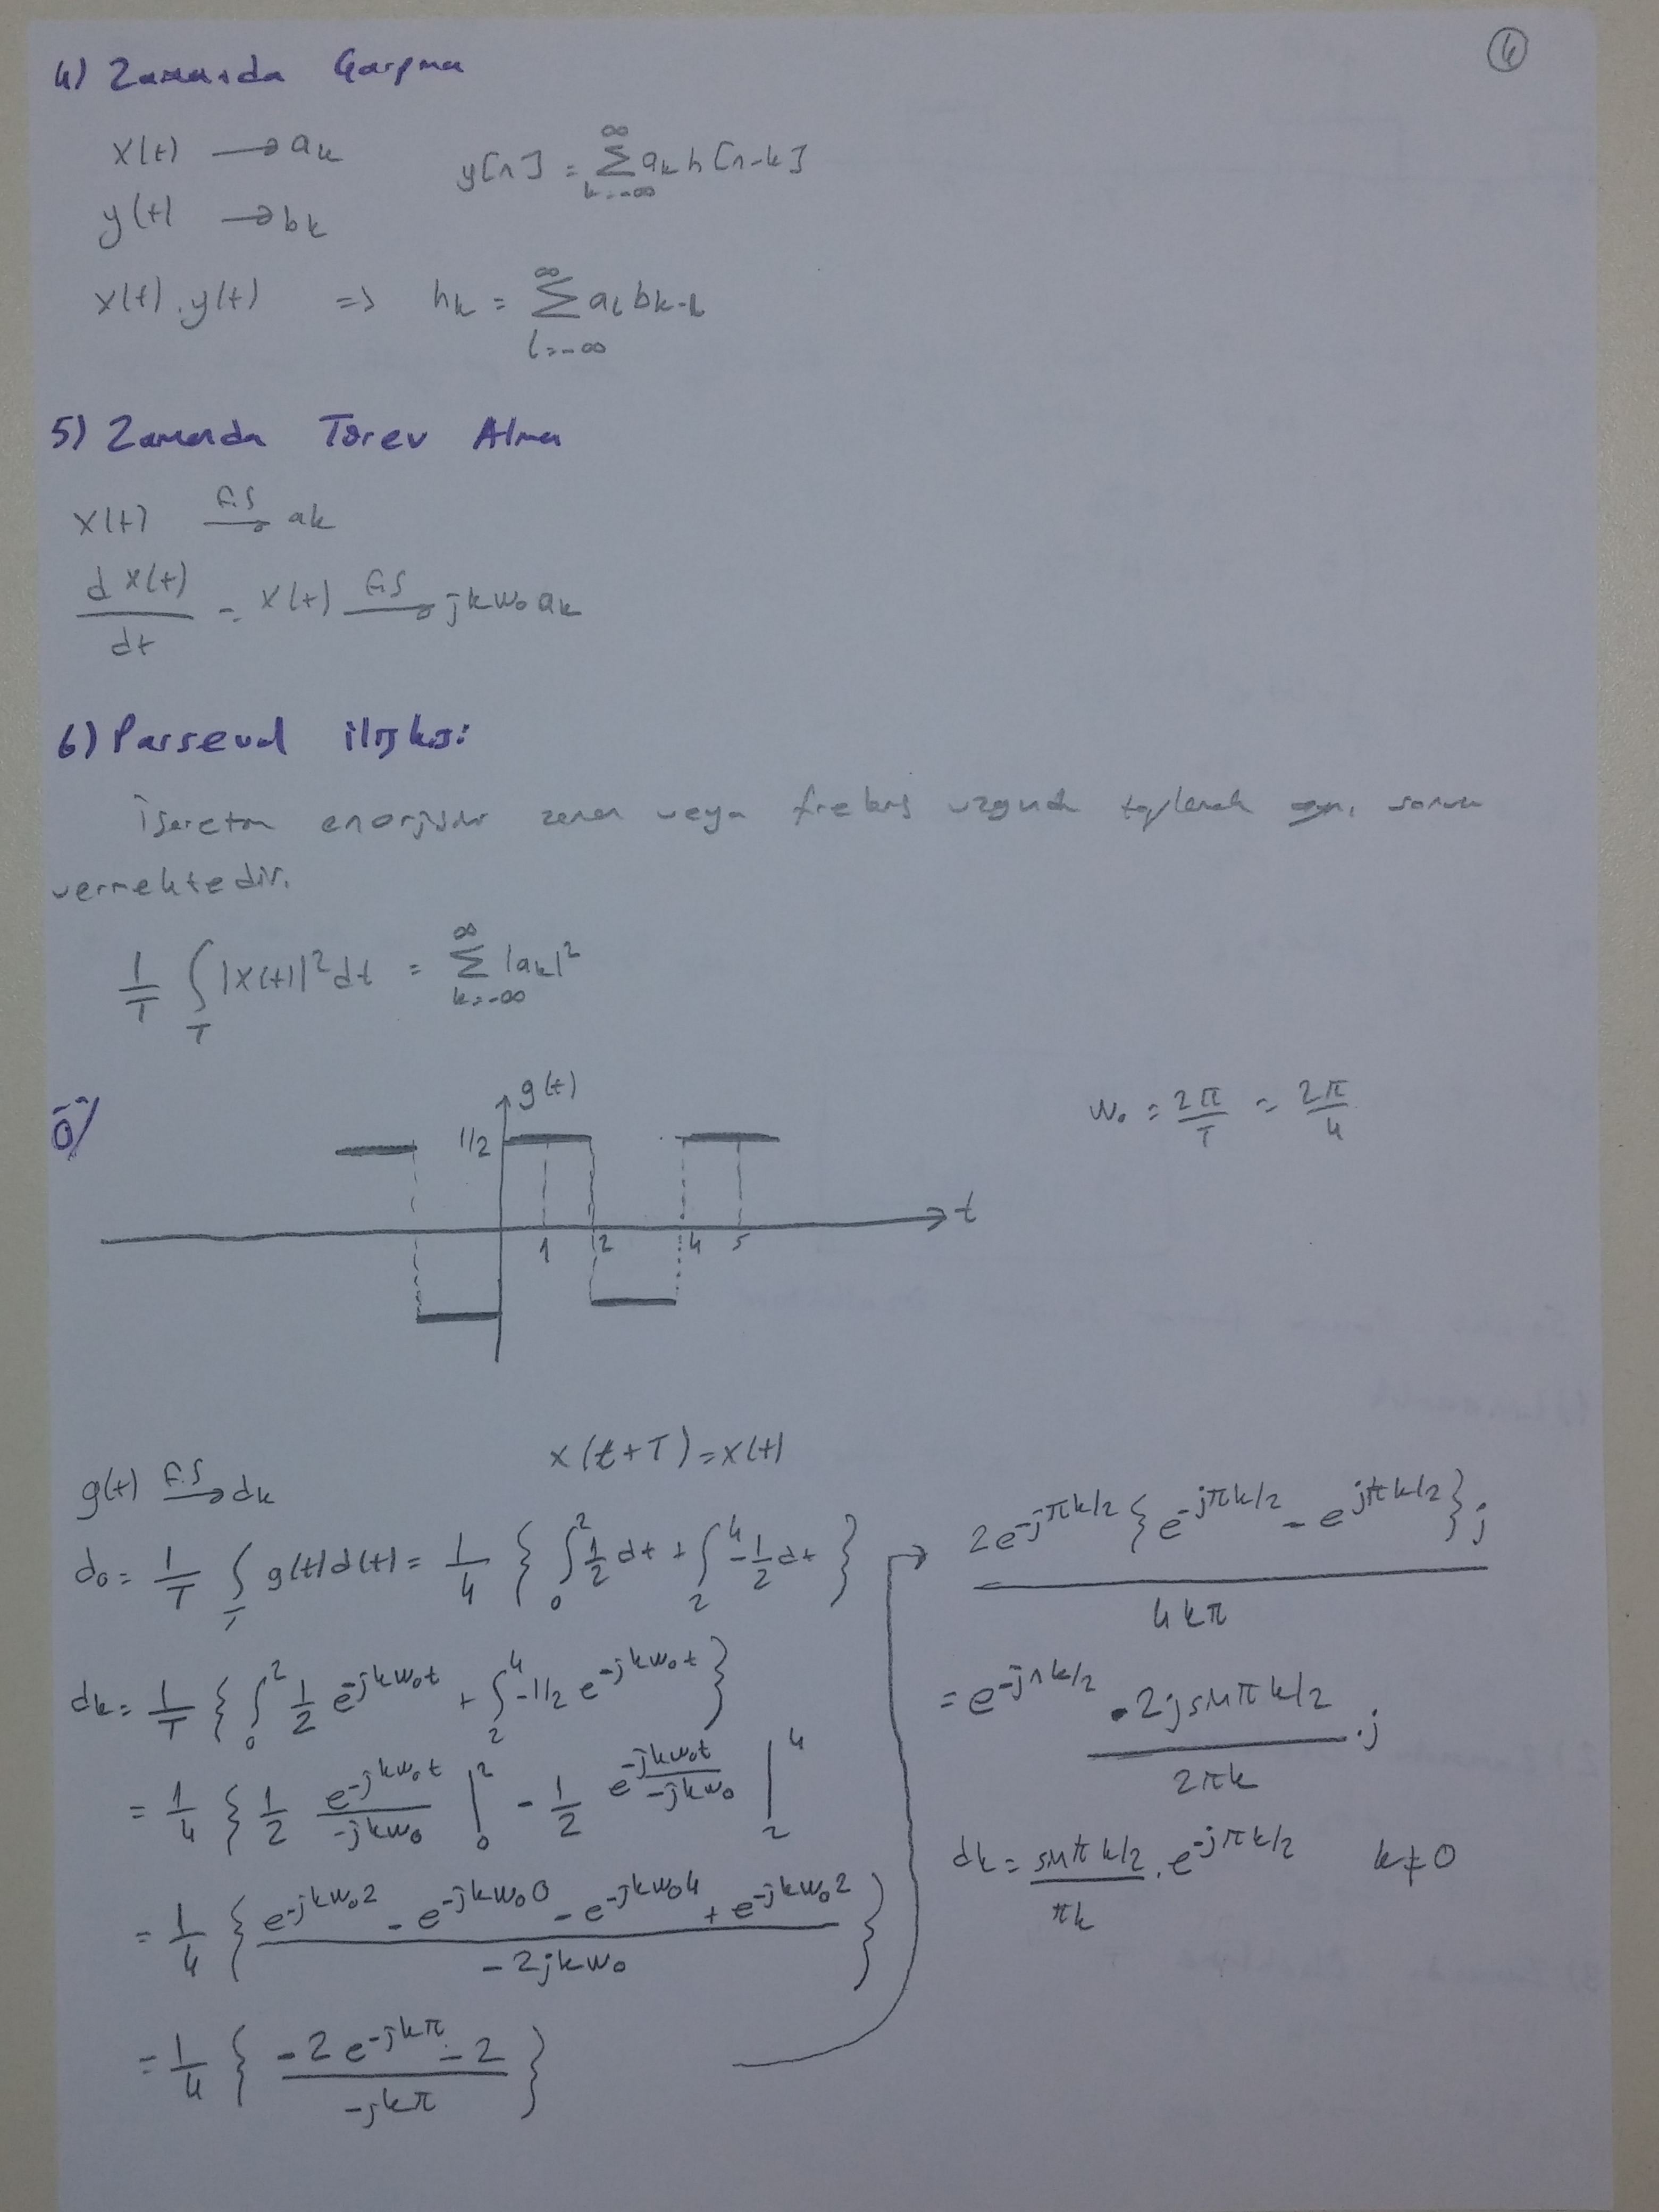 4) Zamanda Çarpma
4
x(t) → ak
y[n] = ∑ k=-∞ ∞ ak h[n-k]
y(t) → bk
x(t).y(t) => hk = ∑ l=-∞ ∞ al bk-l
5) Zamanda Türev Alma
x(t) F.S → ak
d x(t)/dt = x(t) F.S → jkw₀ak
6) Parseval ilişkisi
İşaretin enerjisini zaman veya frekans uzayında toplamak aynı sonucu
vermektedir.
1/T ∫T |x(t)|² dt = ∑ k=-∞ ∞ |ak|²
Ö/
g(t)
w₀ = 2π/T = 2π/4
1/2
t
1 2 4 5
x(t+T) = x(t)
g(t) F.S → dk
d₀ = 1/T ∫T g(t)d(t) = 1/4 { ∫₀² 1/2 dt + ∫₂⁴ -1/2 dt }
dk = 1/T { ∫₀² 1/2 e^-jkw₀t + ∫₂⁴ -1/2 e^-jkw₀t }
= 1/4 { 1/2 e^-jkw₀t / -jkw₀ |₀² - 1/2 e^-jkw₀t / -jkw₀ |₂⁴
= 1/4 { e^-jkw₀2 - e^-jkw₀0 - e^-jkw₀4 + e^-jkw₀2 / -2jkw₀ }
= 1/4 { -2e^-jkπ - 2 / -jkπ }
→ 2e^-jπk/2 { e^-jπk/2 - e^jπk/2 } j / 4kπ
= e^-jπk/2 . -2j sinπk/2 / 2πk . j
dk = sinπk/2 / πk . e^-jπk/2 k≠0